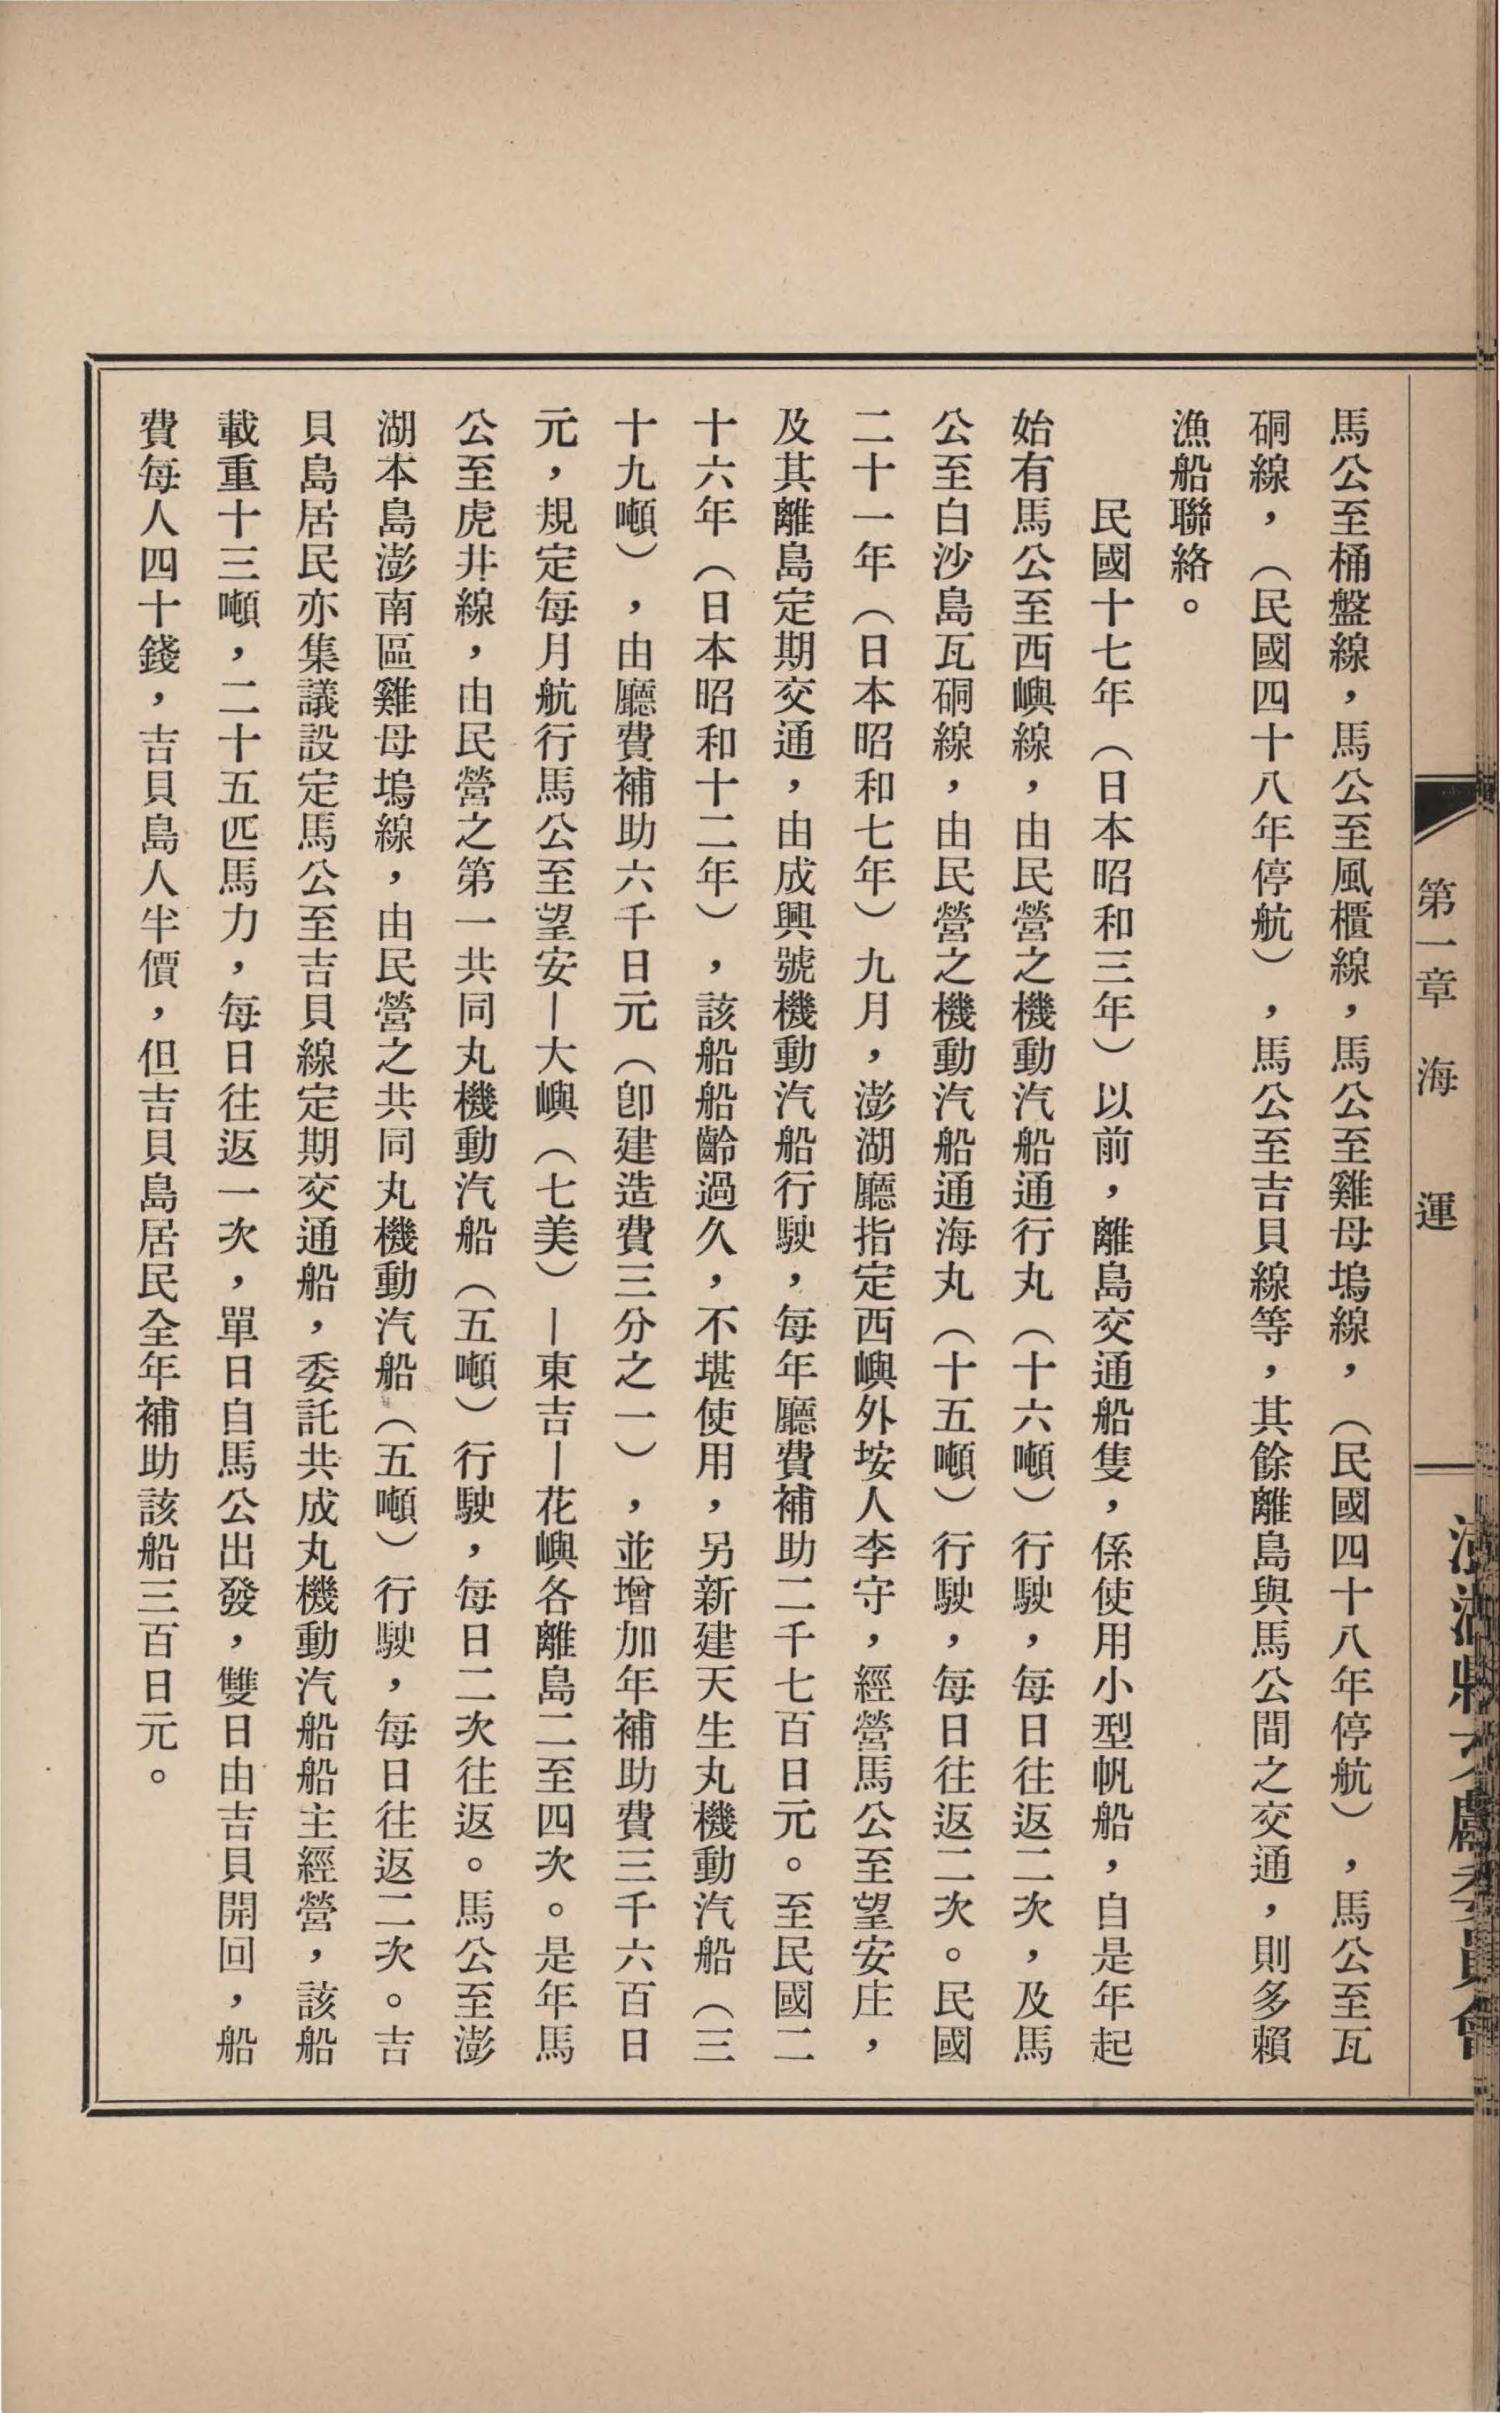 第一章　海　運
澎湖縣文獻委員會
馬公至桶盤線，馬公至風櫃線，馬公至雞母塢線，（民國四十八年停航），馬公至瓦
硐線，（民國四十八年停航），馬公至吉貝線等，其餘離島與馬公間之交通，則多賴
漁船聯絡。
民國十七年（日本昭和三年）以前，離島交通船隻，係使用小型帆船，自是年起
始有馬公至西嶼線，由民營之機動汽船通行丸（十六噸）行駛，每日往返二次，及馬
公至白沙島瓦硐線，由民營之機動汽船通海丸（十五噸）行駛，每日往返二次。民國
二十一年（日本昭和七年）九月，澎湖廳指定西嶼外垵人李守，經營馬公至望安庄，
及其離島定期交通，由成興號機動汽船行駛，每年廳費補助二千七百日元。至民國二
十六年（日本昭和十二年），該船船齡過久，不堪使用，另新建天生丸機動汽船（三
十九噸），由廳費補助六千日元（卽建造費三分之一），並增加年補助費三千六百日
元，規定每月航行馬公至望安—大嶼（七美）—東吉—花嶼各離島二至四次。是年馬
公至虎井線，由民營之第一共同丸機動汽船（五噸）行駛，每日二次往返。馬公至澎
湖本島澎南區雞母塢線，由民營之共同丸機動汽船（五噸）行駛，每日往返二次。吉
貝島居民亦集議設定馬公至吉貝線定期交通船，委託共成丸機動汽船船主經營，該船
載重十三噸，二十五匹馬力，每日往返一次，單日自馬公出發，雙日由吉貝開回，船
費每人四十錢，吉貝島人半價，但吉貝島居民全年補助該船三百日元。